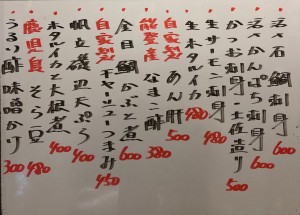 活〆石鯛刺身 600
活〆かんぱち刺身 600
かつお刺身・土佐造り 500
生サーモン刺身 480
生ホタルイカ 480
自家製 あん肝 500
能登産 なまこ酢 380
金目鯛かぶと煮 600
自家製 チャーシューつまみ 450
帆立磯辺天ぷら 400
ホタルイカと大根煮 400
鹿児島 そら豆 480
うるり酢味噌かけ 300